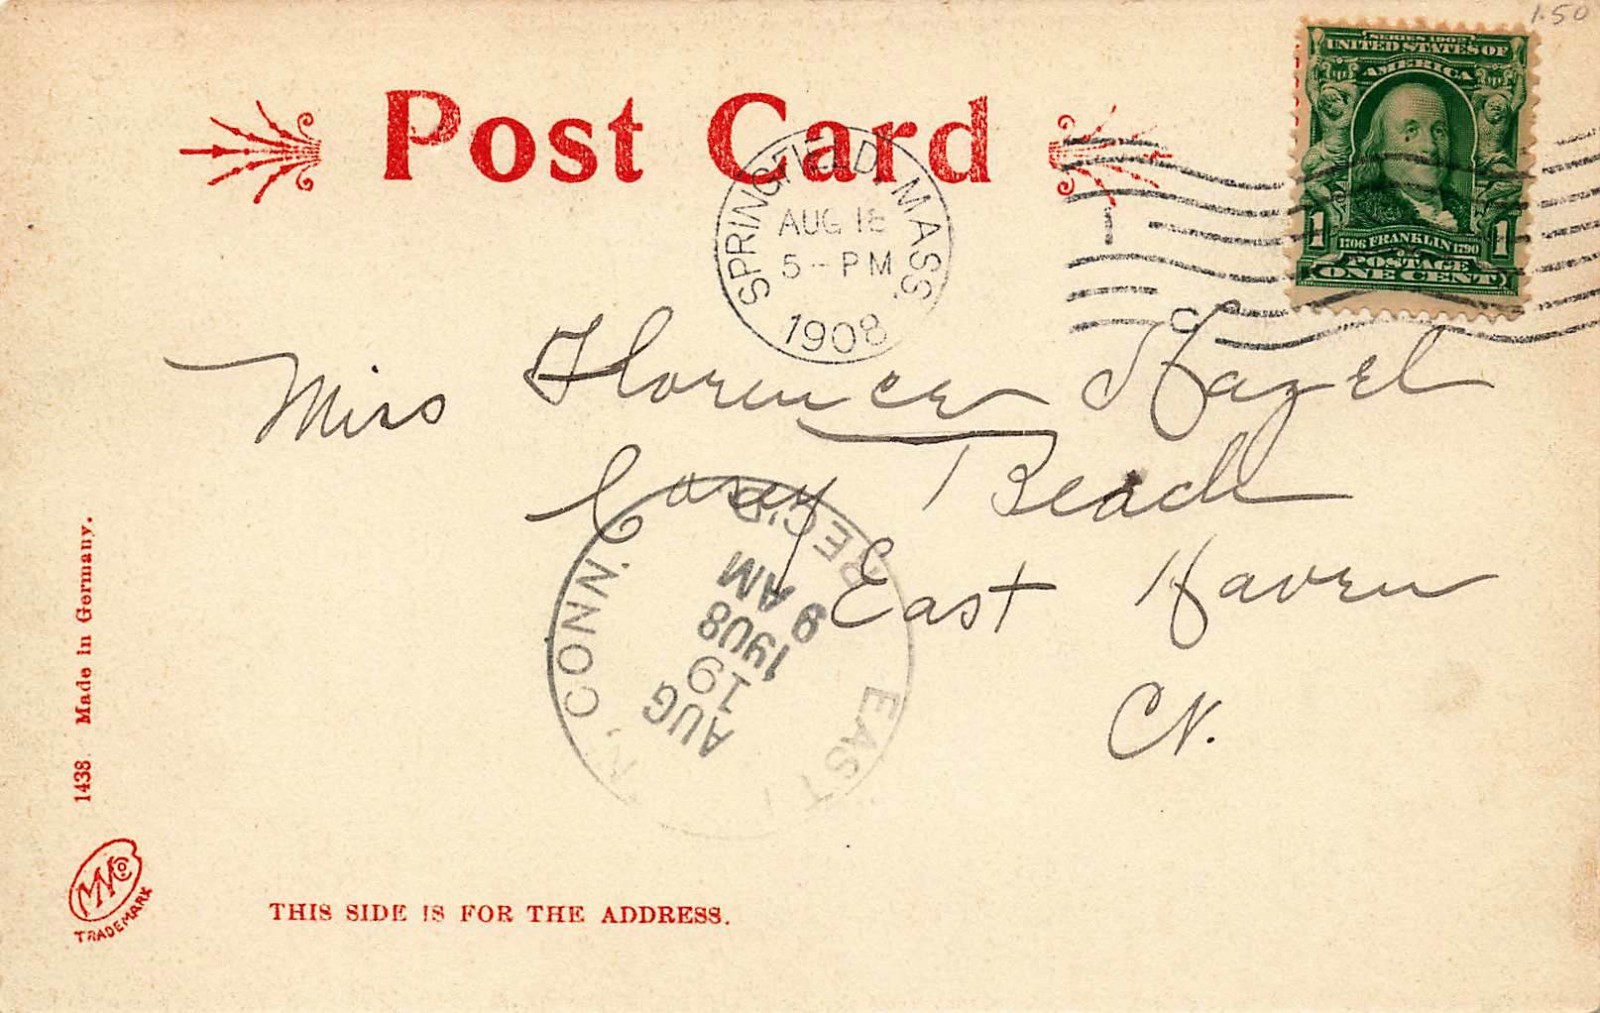 1.50
SERIES 1902
UNITED STATES OF
AMERICA
1 1706 FRANKLIN 1790 1
POSTAGE
ONE CENT
Post Card
SPRINGFIELD, MASS.
AUG 18
5 - PM
1908
1
Miss Florence Hazel
Cosey Beach
East Haven
Ct.
EAST N, CONN.
REC'D
AUG
19
1908
9 AM
1438 Made in Germany.
MMCo
TRADEMARK
THIS SIDE IS FOR THE ADDRESS.